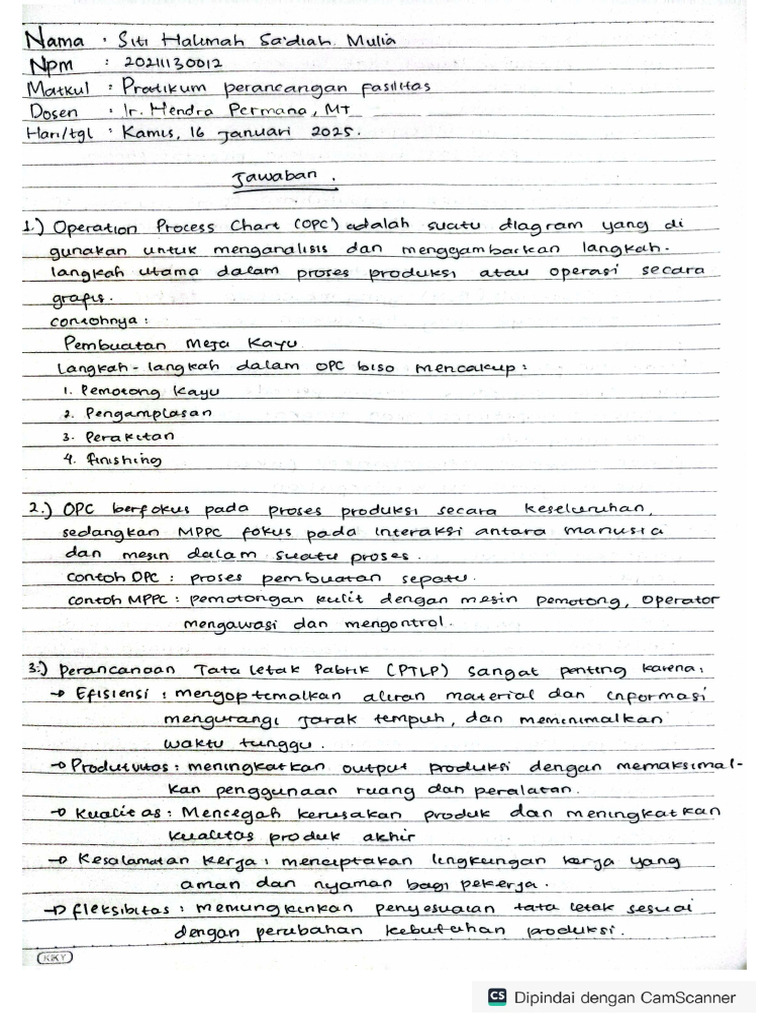 Nama : Siti Halimah Sa'diah Mulia
Npm : 20211130012
Matkul : Pratikum perancangan fasilitas
Dosen : Ir. Hendra Permana, MT
Hari/tgl : Kamis, 16 Januari 2025.
Jawaban.
1.) Operation Process Chart (OPC) adalah suatu diagram yang di
gunakan untuk menganalisis dan menggambarkan langkah-
langkah utama dalam proses produksi atau operasi secara
grafis.
contohnya :
Pembuatan Meja Kayu
Langkah-langkah dalam OPC biso mencakup :
1. Pemotong Kayu
2. Pengamplasan
3. Perakitan
4. finishing
2.) OPC berfokus pada proses produksi secara keseluruhan,
sedangkan MPPC fokus pada interaksi antara manusia
dan mesin dalam suatu proses.
contoh OPC : proses pembuatan sepatu.
contoh MPPC : pemotongan kulit dengan mesin pemotong, operator
mengawasi dan mengontrol.
3.) Perancanaan Tata letak Pabrik (PTLP) sangat penting karena :
→ Efisiensi : mengoptimalkan aliran material dan informasi
mengurangi jarak tempuh, dan meminimalkan
waktu tunggu.
→ Produtvitas : meningkatkan output produksi dengan memaksimal-
kan penggunaan ruang dan peralatan.
→ Kualitas : Mencegah kerusakan produk dan meningkatkan
kualitas produk akhir
→ Kesalamatan Kerja : menciptakan lingkungan kerja yang
aman dan nyaman bagi pekerja.
→ fleksibitas : memungkinkan penyesuaian tata letak sesuai
dengan perubahan kebutuhan produksi.
KKY
CS Dipindai dengan CamScanner